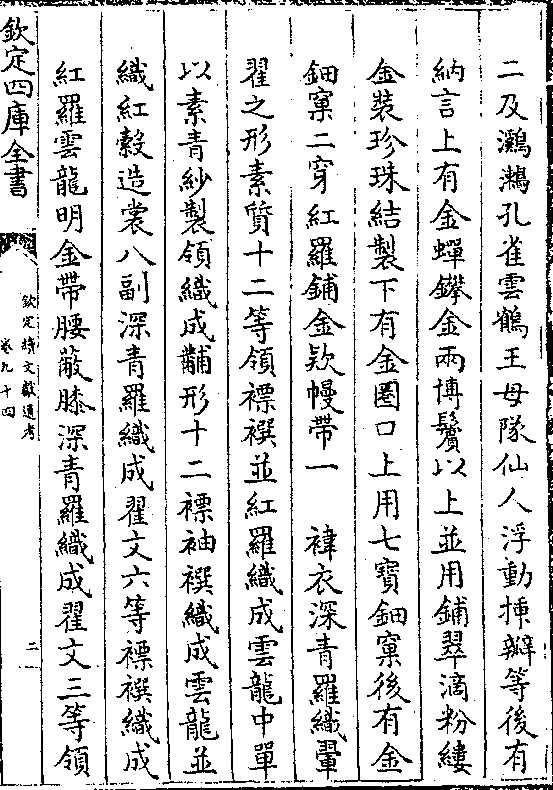 二及鸂鶒孔雀雲鶴王母隊仙人浮動揷瓣等後有
納言上有金蟬鑻金兩博鬢以上並用鋪翠滴粉縷
金裝珍珠結製下有金圈口上用七寶鈿窠後有金
鈿窠二穿紅羅鋪金欵幔帶一　褘衣深青羅織翬
翟之形素質十二等領褾襈並紅羅織成雲龍中單
以素青紗製領織成黼形十二褾袖襈織成雲龍並
織紅縠造裳八副深青羅織成翟文六等褾襈織成
紅羅雲龍明金帶腰蔽膝深青羅織成翟文三等領
欽定四庫全書
欽定續文獻通考
卷九十四
二